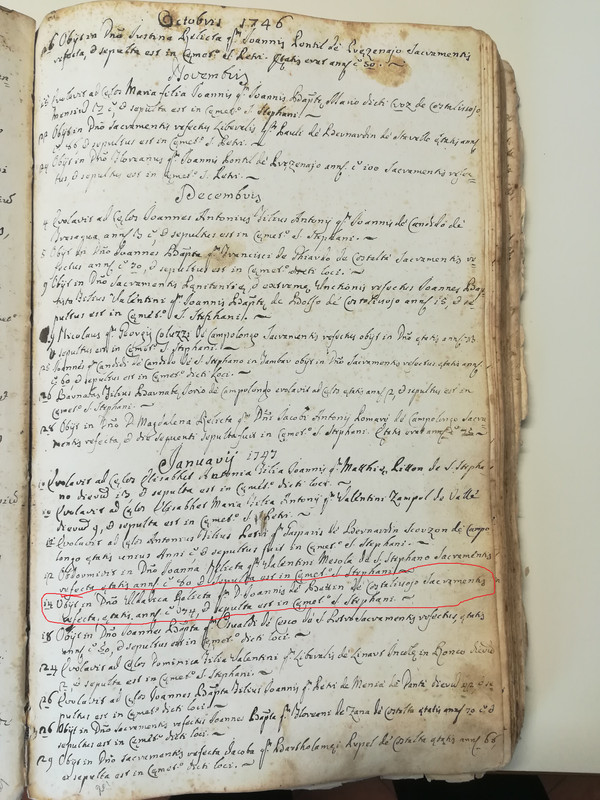 Octobris 1746
26 Obijt in Dño Justina Relecta qm Joannis Pontil de Prezenajo Sacramentis
refecta, & sepulta est in Cæmet.º S. Petri. Ætatis erat annor. cª 50.
Novembris
Evolavit ad Cælos Maria filia Joannis qm Joannis Baptæ Mario dicti de Costalissojo
mensium & sepulta est in Cæmet.º S. Stephani.
Obijt in Dño Sacramentis refectus Liberalis qm Pauli de Bernardin de Stavello ætatis annor.
cª 80 & sepultus est in Cæmet.º S. Petri.
Obijt in Dño Floreanus qm Joannis Pontil de Prezenajo annor. cª 100 Sacramentis refec=
tus & sepultus est in Cæmet.º S. Petri.
Decembris
4 Evolavit ad Cælos Joannes Antonius filius Antonij qm Joannis de Candido de
annor. & sepultus est in Cæmet.º S. Stephani.
5 Obijt in Dño Joannes Bapta qm Francisci de Ghirardo de Costalta Sacramentis re=
fectus annor. cª 70, & sepultus est in Cæmet.º dicti loci.
9 Obijt in Dño Sacramentis Pænitentiæ, & extremæ Unctionis refectus Joannes Bap=
tista filius Valentini qm Joannis Baptæ de Rodolfo de Costalissojo annor. 15, & se=
pultus est in Cæmet.º S. Stephani.
9 Nicolaus qm Georgij Coluzzi de Campolongo Sacramentis refectus obijt in Dño ætatis annor.
& sepultus est in Cæmet.º S. Stephani.
25 Joannes qm Candidi de Candido de S. Stephano in Dño Sacramentis refectus ætatis annor.
cª 60, & sepultus est in Cæmet.º dicti loci.
26 Barnabas filius Barnabæ de Campolongo evolavit ad Cælos ætatis annor. 2, & sepultus est in
Cæmet.º S. Stephani.
28 Obijt in Dño D. Magdalena Relicta qm Dñi Jacobi Antonij de Campolongo Sacra=
mentis refecta, & die sequenti sepulta fuit in Cæmet.º S. Stephani. Ætatis erat annor.
Januarij 1747
Evolavit ad Cælos Elisabet Antonia filia Joannis qm Matthiæ de S. Stepha=
no dierum 13, & sepulta est in Cæmet.º dicti loci.
10 Evolavit ad Cælos Elisabet Maria filia Antonij qm Valentini Zampol de Valle
dierum 9, & sepulta est in Cæmet.º S. Petri.
Evolavit ad Cælos Antonius filius Petri qm Gasparis de Bernardin de Campo=
longo ætatis unius Anni cª & sepultus fuit in Cæmet.º S. Stephani.
12 Obdormivit in Dño Joanna Relicta qm Valentini Mesola de S. Stephano Sacramentis
refecta ætatis annor. cª 80 & sepulta est in Cæmet.º S. Stephani.
14 Obijt in Dño Illarica Relicta qm D. Joannis de Battin de Costalissojo Sacramentis
refecta, ætatis annor. cª 74, & sepulta est in Cæmet.º S. Stephani.
18 Obijt in Dño Joannes Bapta qm Osualdi de Cesco de S. Petro Sacramentis refectus, ætatis
annor. cª 50, & sepultus est in Cæmet.º dicti loci.
24 Evolavit ad Cælos Dominica filia Valentini qm Liberalis de in Ronco dierum
& sepulta est in Cæmet.º S. Stephani.
26 Evolavit ad Cælos Joannes Bapta filius Joannis qm Petri de de Ponte dierum & se=
pultus est in Cæmet.º dicti loci.
26 Obijt in Dño Sacramentis refectus Joannes Bapta qm Floreani de Zana de Costalta ætatis annor. 70 cª &
sepultus est in Cæmet.º dicti loci.
29 Obijt in Dño Sacramentis refecta Jacoba qm Bartholamei de Costalta ætatis annor. 66
& sepulta est in Cæmet.º dicti loci.